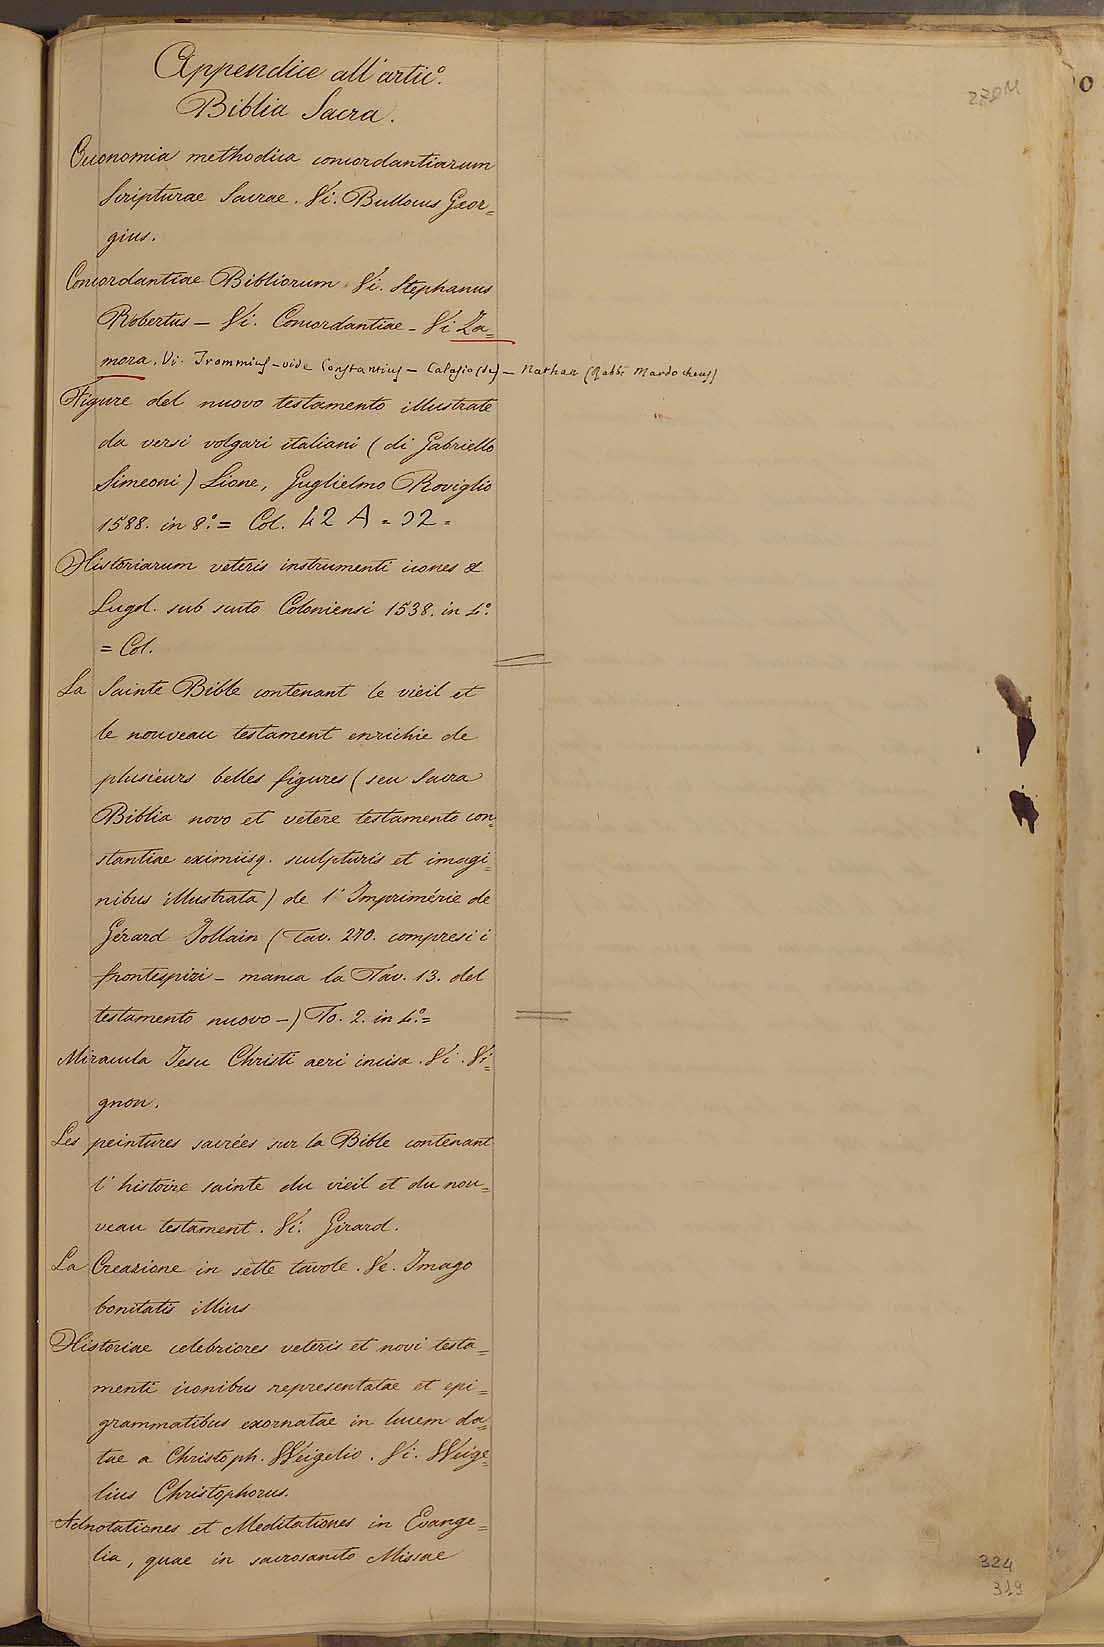 Appendice all'artic.º
Biblia Sacra.
Oeconomia methodica concordantiarum
Scripturae Sacrae. Vi. Bullocus Geor=
gius.
Concordantiae Bibliorum Vi. Stephanus
Robertus – Vi. Concordantiae – Vi Za=
mora. Vi. Trommius – vide Constantius – Calasio (de) – Nathan (Rabbi Mardocheus)
Figure del nuovo testamento illustrate
da versi volgari italiani (di Gabriello
Simeoni) Lione, Guglielmo Roviglio
1588. in 8.º = Col. 42 A = 32 =
Historiarum veteris instrumenti icones &
Lugd. sub scuto Coloniensi 1538. in 4.º
= Col.
La Sainte Bible contenant le vieil et
le nouveau testament enrichie de
plusieurs belles figures (seu Sacra
Biblia novo et vetere testamento con=
stantiae eximiisq. sculpturis et imagi=
nibus illustrata) de l'Imprimérie de
Gérard Jollain (Tav. 270. compresi i
frontespizi – manca la Tav. 13. del
testamento nuovo –) To. 2. in 4.º =
Miracula Jesu Christi aeri incisa. Vi. Vi=
gnon.
Les peintures sacrées sur la Bible contenant
l'histoire sainte du vieil et du nou=
veau testament. Vi. Girard.
La Creazione in sette tavole. Ve. Imago
bonitatis illius
Historiae celebriores veteris et novi testa=
menti iconibus representatae et epi=
grammatibus exornatae in lucem da=
tae a Christoph. Weigelio. Vi. Weige=
lius Christophorus.
Adnotationes et Meditationes in Evange=
lia, quae in sacrosancto Missae
324
319